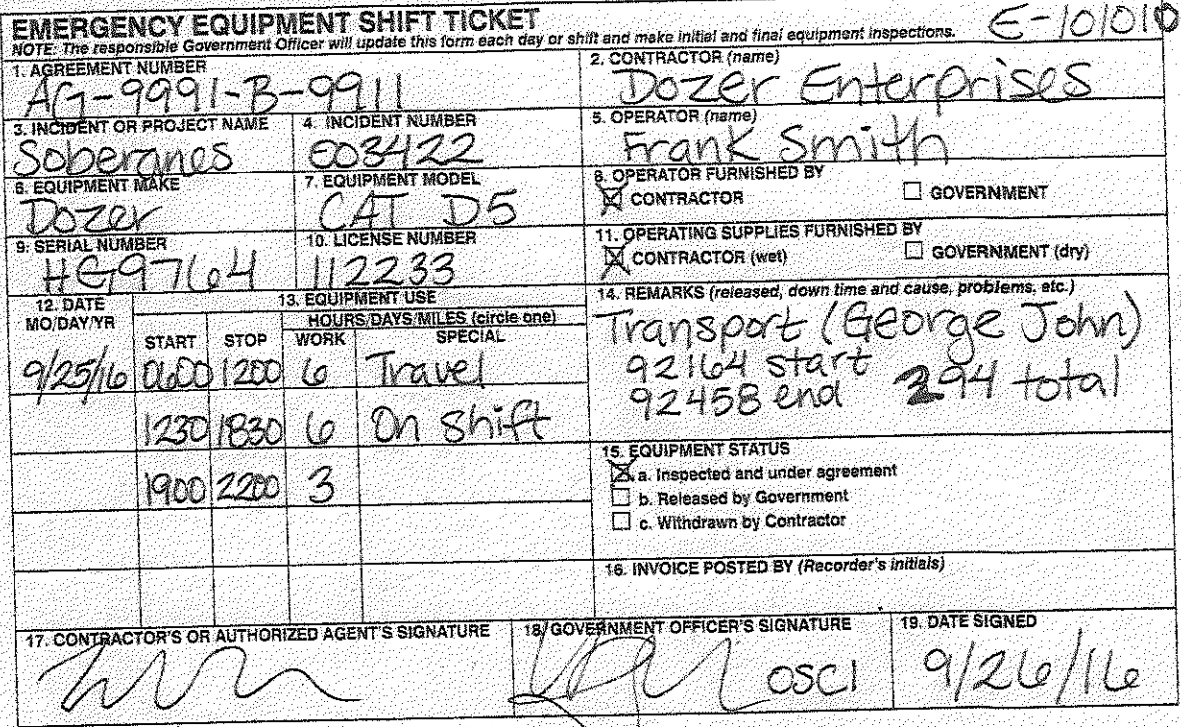 EMERGENCY EQUIPMENT SHIFT TICKET
E-101010
NOTE: The responsible Government Officer will update this form each day or shift and make initial and final equipment inspections.
1. AGREEMENT NUMBER
AG-9991-B-9911
2. CONTRACTOR (name)
Dozer Enterprises
3. INCIDENT OR PROJECT NAME
Soberanes
4. INCIDENT NUMBER
003422
5. OPERATOR (name)
Frank Smith
6. EQUIPMENT MAKE
Dozer
7. EQUIPMENT MODEL
CAT D5
8. OPERATOR FURNISHED BY
CONTRACTOR GOVERNMENT
9. SERIAL NUMBER
HG9764
10. LICENSE NUMBER
112233
11. OPERATING SUPPLIES FURNISHED BY
CONTRACTOR (wet) GOVERNMENT (dry)
12. DATE
MO/DAY/YR
13. EQUIPMENT USE
HOURS/DAYS/MILES (circle one)
START STOP WORK SPECIAL
9/25/16 0600 1200 6 Travel
1230 1830 6 On Shift
1900 2200 3
14. REMARKS (released, down time and cause, problems, etc.)
Transport (George John)
92164 start
92458 end 294 total
15. EQUIPMENT STATUS
a. Inspected and under agreement
b. Released by Government
c. Withdrawn by Contractor
16. INVOICE POSTED BY (Recorder's initials)
17. CONTRACTOR'S OR AUTHORIZED AGENT'S SIGNATURE
18. GOVERNMENT OFFICER'S SIGNATURE
OSC1
19. DATE SIGNED
9/26/16